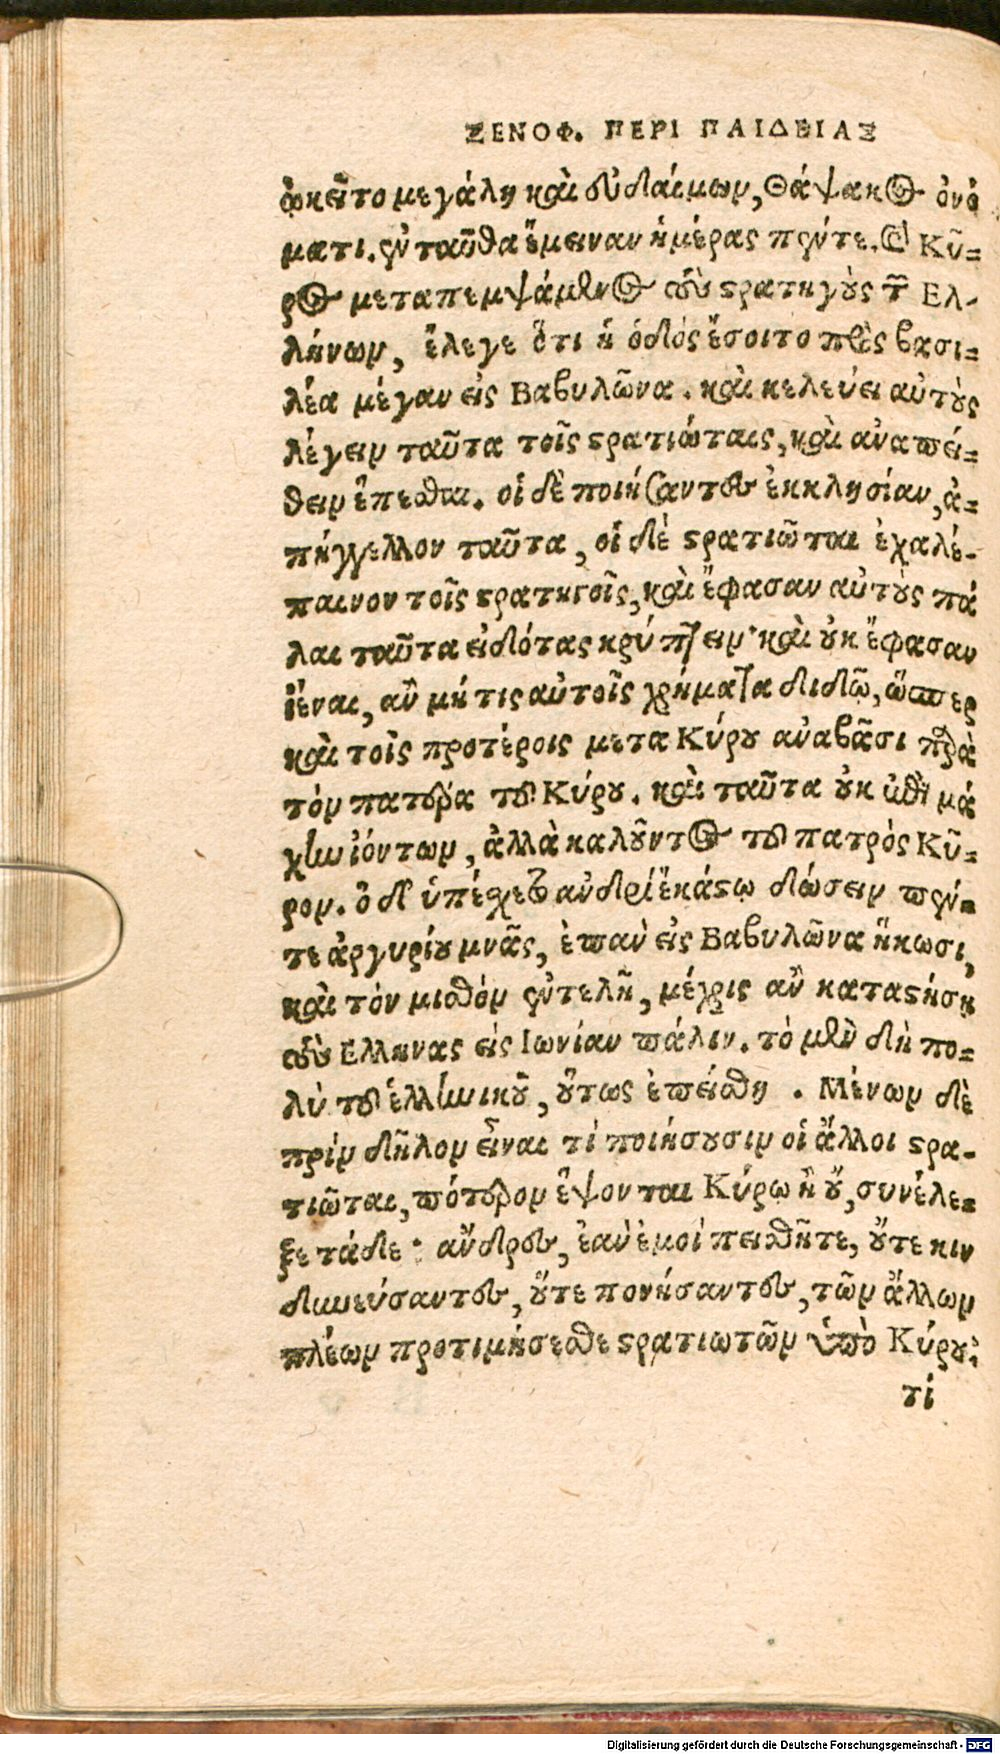 ΞΕΝΟΦ. ΠΕΡΙ ΠΑΙΔΕΙΑΣ
ᾠκεῖτο μεγάλη καὶ εὐδαίμων, Θάψακος ὀνό
ματι. ἐνταῦθα ἔμειναν ἡμέρας πέντε. καὶ Κῦ-
ρος μεταπεμψάμενος τοὺς ϛρατηγοὺς τῶν Ελ-
λήνων, ἔλεγε ὅτι ἡ ὁδὸς ἔσοιτο πρὸς βασι-
λέα μέγαν εἰς Βαβυλῶνα. καὶ κελεύει αὐτοὺς
λέγειν ταῦτα τοῖς ϛρατιώταις, καὶ ἀναπεί-
θειν ἕπεσθαι. οἱ δὲ ποιήσαντες ἐκκλησίαν, ἀ-
πήγγελλον ταῦτα, οἱ δὲ ϛρατιῶται ἐχαλέ-
παινον τοῖς ϛρατηγοῖς, καὶ ἔφασαν αὐτοὺς πά
λαι ταῦτα εἰδότας κρύπτειν· καὶ οὐκ ἔφασαν
ἰέναι, ἂν μή τις αὐτοῖς χρήματα διδῷ, ὥσπερ
καὶ τοῖς προτέροις μετα Κύρου ἀναβᾶσι παρὰ
τὸν πατέρα τοῦ Κύρου. καὶ ταῦτα οὐκ ἐπὶ μά
χην ἰόντων, ἀλλὰ καλοῦντος τοῦ πατρὸς Κῦ-
ρον. ὁ δ' ὑπέσχετο ἀνδρὶ ἑκάϛῳ δώσειν πέν-
τε ἀργυρίου μνᾶς, ἐπὰν εἰς Βαβυλῶνα ἥκωσι,
καὶ τὸν μισθὸν ἐντελῆ, μέχρις ἂν καταϛήσῃ
τοὺς Ελληνας εἰς Ιωνίαν πάλιν. τὸ μὲν δὴ πο-
λὺ τοῦ ἑλληνικοῦ, οὕτως ἐπείσθη. Μένων δὲ
πρὶν δῆλον εἶναι τί ποιήσουσιν οἱ ἄλλοι ϛρα-
τιῶται, πότερον ἕψονται Κύρῳ ἢ οὔ, συνέλε-
ξε τάδε· ἄνδρες, ἐὰν ἐμοὶ πεισθῆτε, οὔτε κιν
δυνεύσαντες, οὔτε πονήσαντες, τῶν ἄλλων
πλέων προτιμήσεσθε ϛρατιωτῶν ὑπὸ Κύρου;
τί
Digitalisierung gefördert durch die Deutsche Forschungsgemeinschaft - DFG